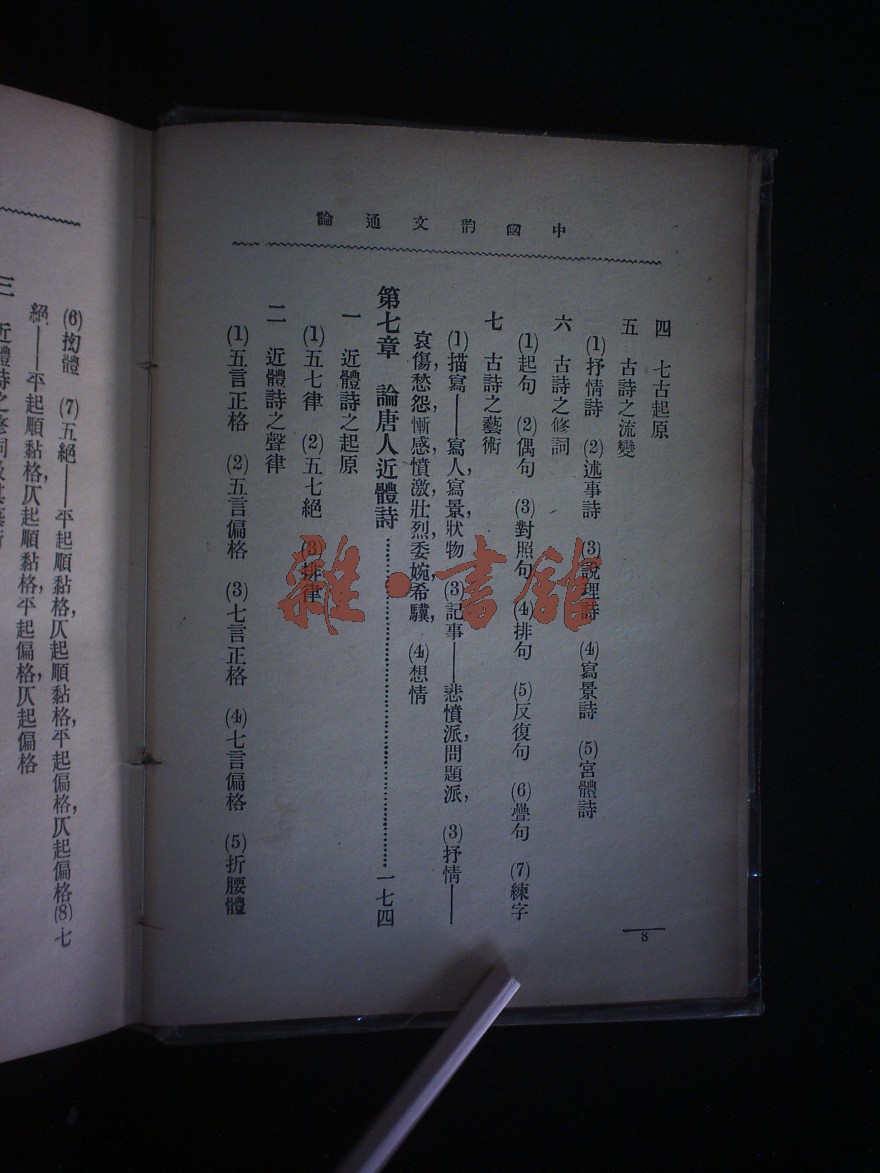 中國韵文通論
四　七古起原
五　古詩之流變
(1)抒情詩　(2)述事詩　(3)說理詩　(4)寫景詩　(5)宮體詩
六　古詩之修詞
(1)起句　(2)偶句　(3)對照句　(4)排句　(5)反復句　(6)疊句　(7)練字
七　古詩之藝術
(1)描寫——寫人，寫景，狀物　(3)記事——悲憤派，問題派，　(3)抒情——
哀傷，愁怨，慚感，憤激，壯烈，委婉，希驥，　(4)想情
第七章　論唐人近體詩……………………一七四
一　近體詩之起原
(1)五七律　(2)五七絕　(3)排律
二　近體詩之聲律
(1)五言正格　(2)五言偏格　(3)七言正格　(4)七言偏格　(5)折腰體
8
(6)拗體　(7)五絕——平起順黏格，仄起順黏格，平起偏格，仄起偏格(8)七
絕——平起順黏格，仄起順黏格，平起偏格，仄起偏格
三　近體詩之修詞及其藝術
雜·書館